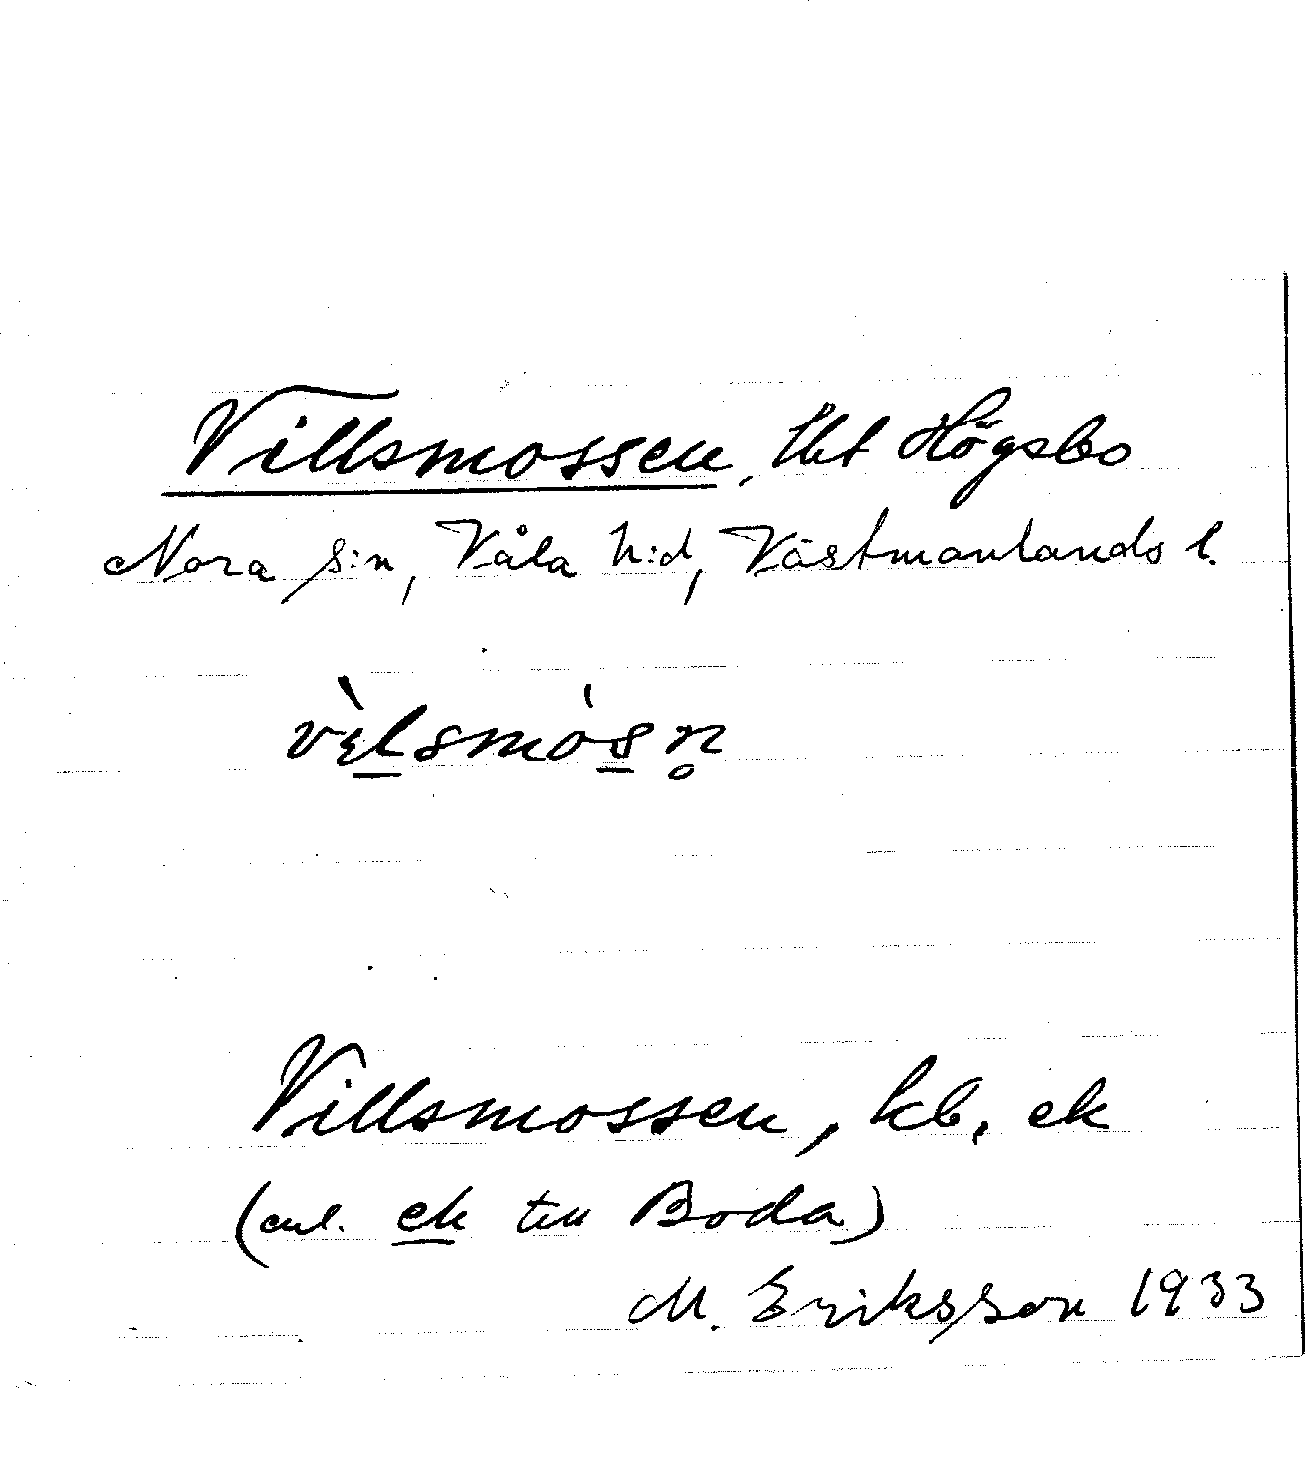 Villsmossen, tkt Högsbo
Nora s:n, Våla h:d, Västmanlands l.
vèlsmósn̥
Villsmossen, kb, ek
(enl. ek till Boda)
M. Eriksson 1933